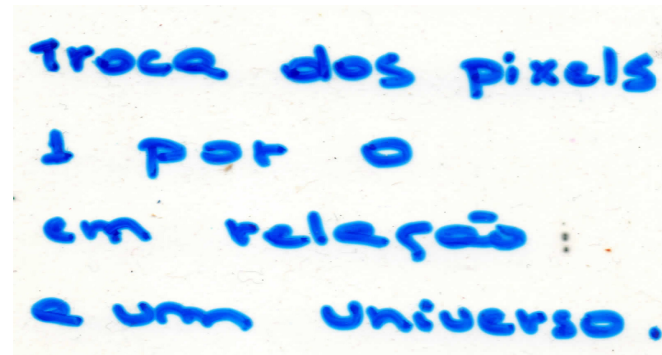 Troca dos pixels
1 por 0
em relação :
a um universo.